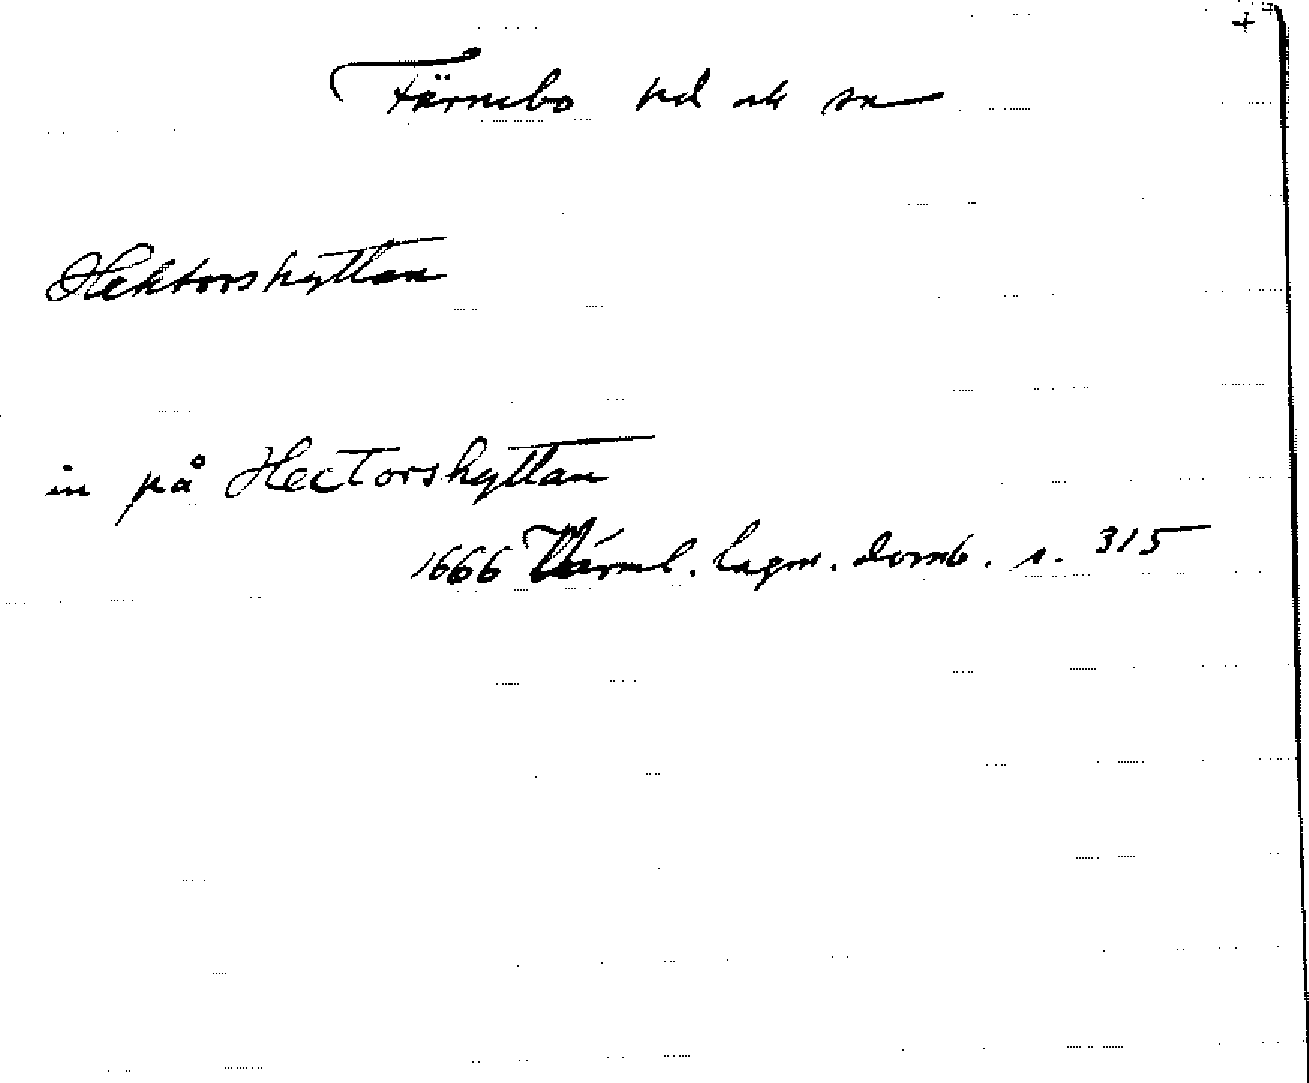 +
Färnebo hd ok sn
Hektorshyttan
in på Hectorshyttan
1666 Värml. lagm. domb. s. 315